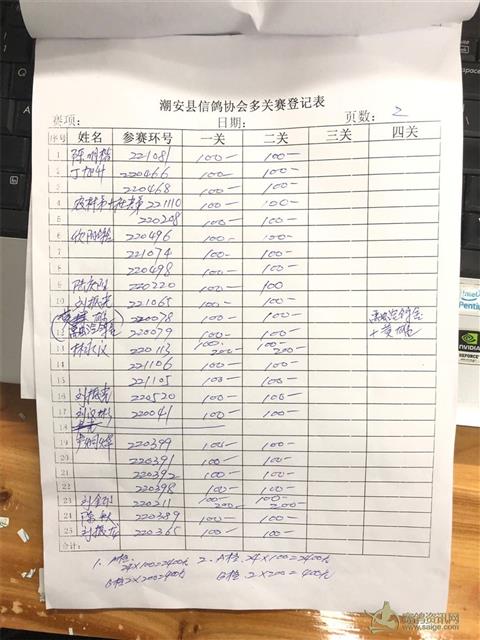 潮安县信鸽协会多关赛登记表
赛项： 日期： 页数：2
序号 姓名 参赛环号 一关 二关 三关 四关
1 陈 221081 100- 100-
2 丁旭叶 220466 100- 100-
3 220468 100- 100-
4 221110 100- 100-
5 220208 100- 100-
6 220496 100- 100-
7 221074 100- 100-
8 220498 100- 100-
9 陈 220220 100- 100
10 刘振光 221065 100- 100-
11 220078 100- 100-
12 220079 100- 100- +黄
13 林 220113 100- 200- 100- 200-
14 221106 100- 100-
15 221105 100- 100-
16 刘振光 220520 100- 100-
17 刘汉彬 220041 100- 100-
18
19 卢 220399 100- 100-
20 220391 100- 100-
21 220392 100- 100-
22 220398 100- 100-
23 刘 220211 100- 200- 100- 200-
24 陈 220389 100- 100-
25 刘振 220365 100- 100-
合计：
1、A栏：24×100=2400元 2、A栏：24×100=2400元
B栏：2×200=400元 B栏：2×200=400元
intel
Pentium
NVIDIA
GEFORCE
赛鸽资讯网
www.saige.com